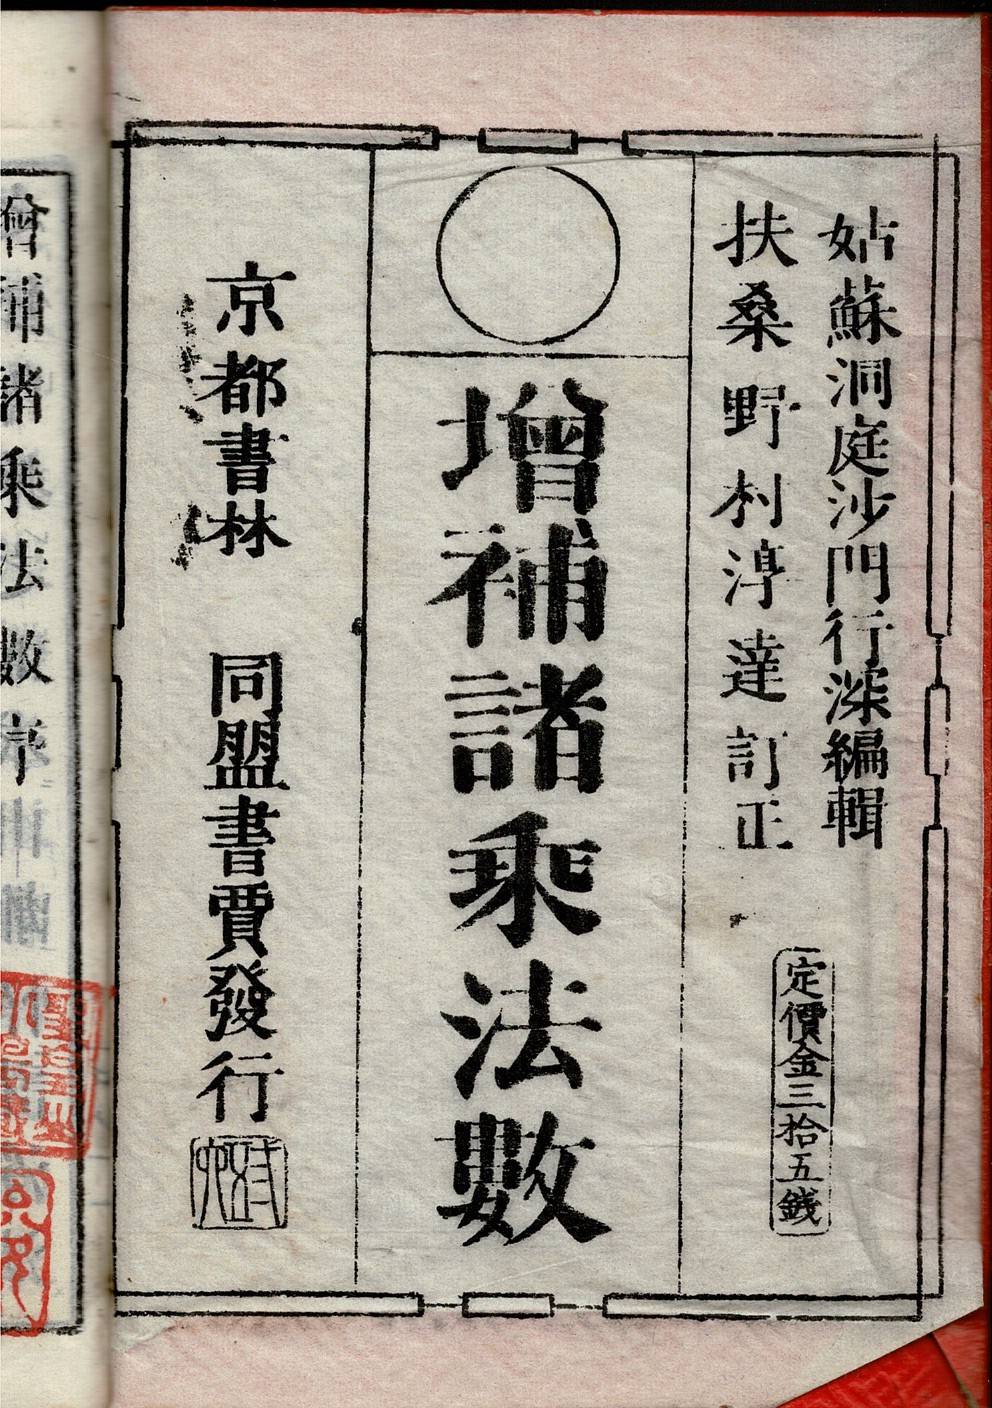 姑蘇洞庭沙門行深編輯
扶桑野村淳達訂正
定價金三拾五錢
增補諸乘法數
京都書林 同盟書賈發行
增補諸乘法數序